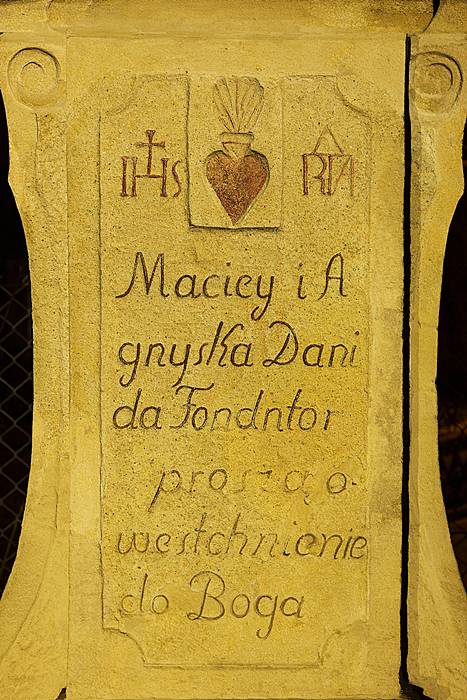 IHS MARIA
Maciey i A
gnyska Dani
da Fondntor
proszą o
westchnienie
do Boga